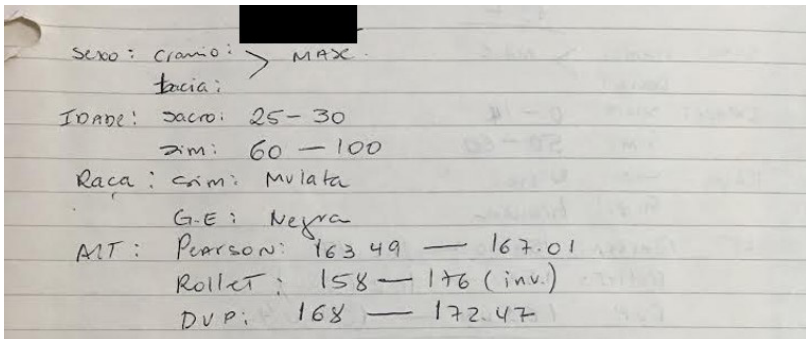 Sexo: cranio: > MAX.
bacia:
IDADE: sacro: 25 - 30
zim: 60 — 100
Raça: crim: Mulata
G.E: Negra
ALT: PEARSON: 163 49 — 167.01
RolleT: 158 — 176 (inv.)
DVP: 168 — 172.47